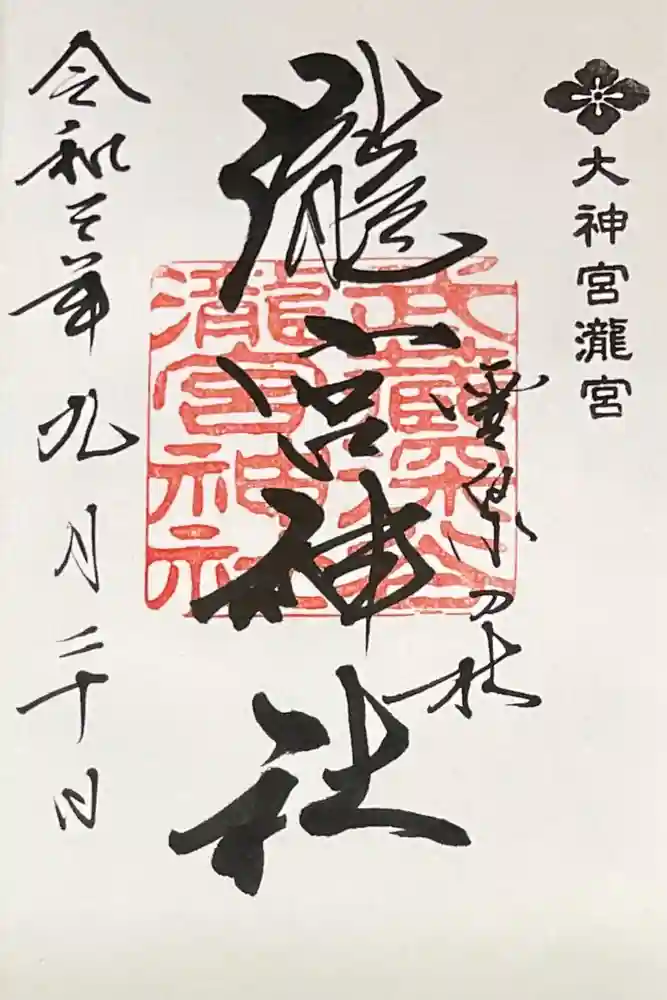 大神宮瀧宮
霊泉乃杜
瀧宮神社
武藏深谷
瀧宮神社
令和三年九月二十日